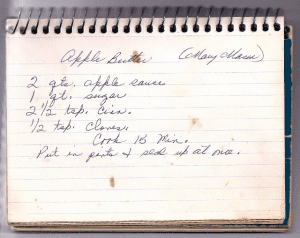 Apple Butter (Mary Maser)
2 qts. apple sauce
1 qt. sugar
2 1/2 tsp. Cinn.
1/2 tsp. Cloves.
Cook 15 Min.
Put in pints & seal up at once.